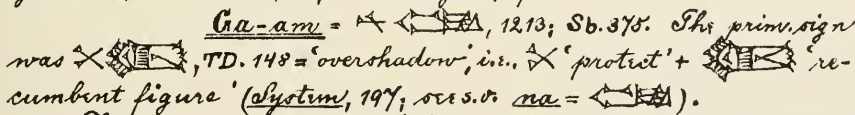 Ga-am = 𒉽 𒈿, 1213; Sb. 375. The prim. sign
was , TD. 148 = 'overshadow', i.e., 'protect' + 're-
cumbent figure' (System, 197; see s.v. na = 𒈿).